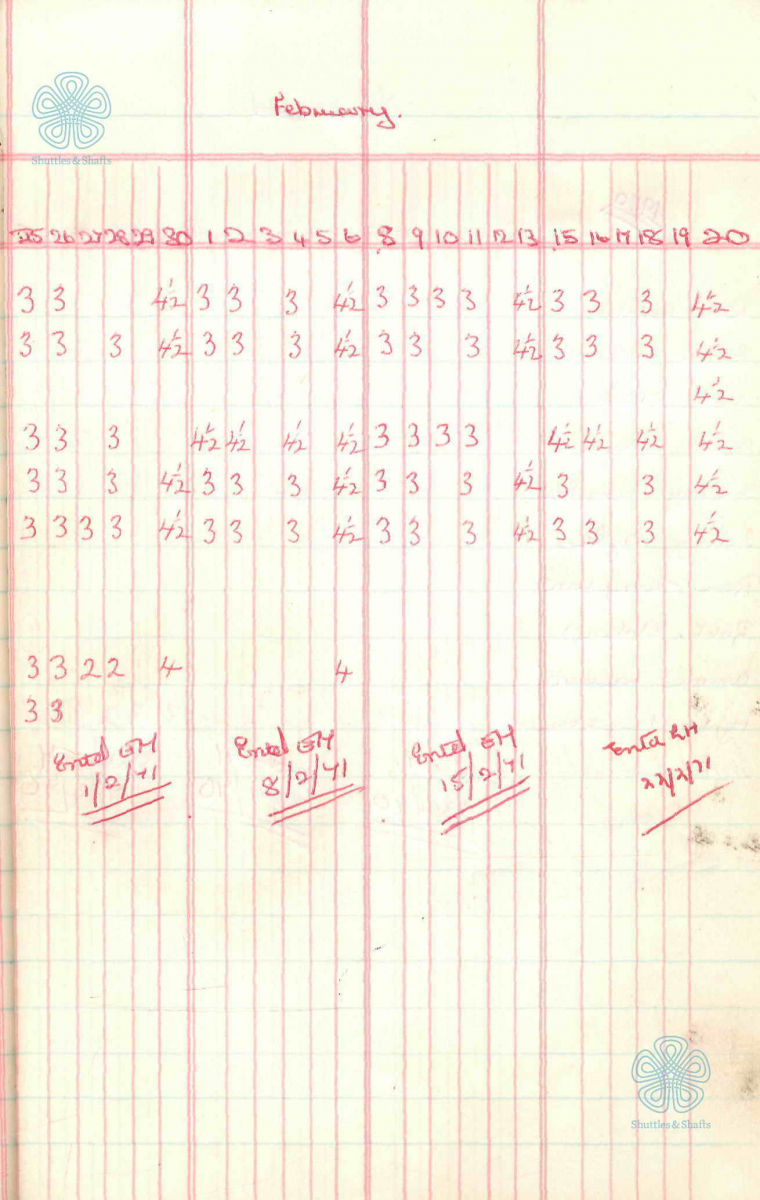 February.
Shuttles & Shafts
25 26 27 28 29 30 1 2 3 4 5 6 8 9 10 11 12 13 15 16 17 18 19 20
3 3 4½ 3 3 3 4½ 3 3 3 3 4½ 3 3 3 4½
3 3 3 4½ 3 3 3 4½ 3 3 3 4½ 3 3 3 4½
4½
3 3 3 4½ 4½ 4½ 4½ 3 3 3 3 4½ 4½ 4½ 4½
3 3 3 4½ 3 3 3 4½ 3 3 3 4½ 3 3 4½
3 3 3 3 4½ 3 3 3 4½ 3 3 3 4½ 3 3 3 4½
3 3 2 2 4 4
3 3
Entd GH
1/2/71
Entd GH
8/2/71
Entd GH
15/2/71
22/2/71
Shuttles & Shafts